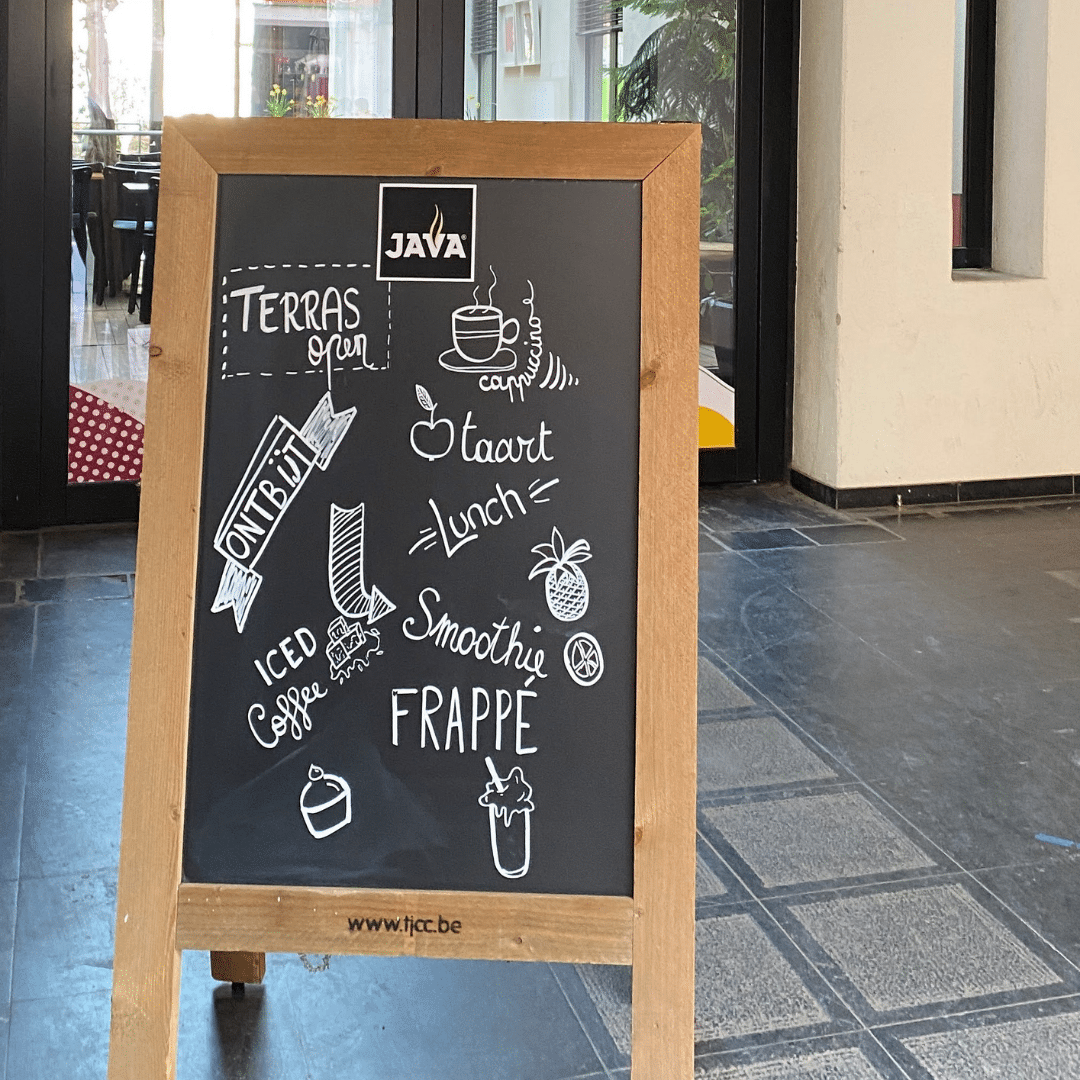 JAVA®
TERRAS
open
cappuccino
taart
ONTBIJT
Lunch
Smoothie
ICED
Coffee
FRAPPÉ
www.tjcc.be